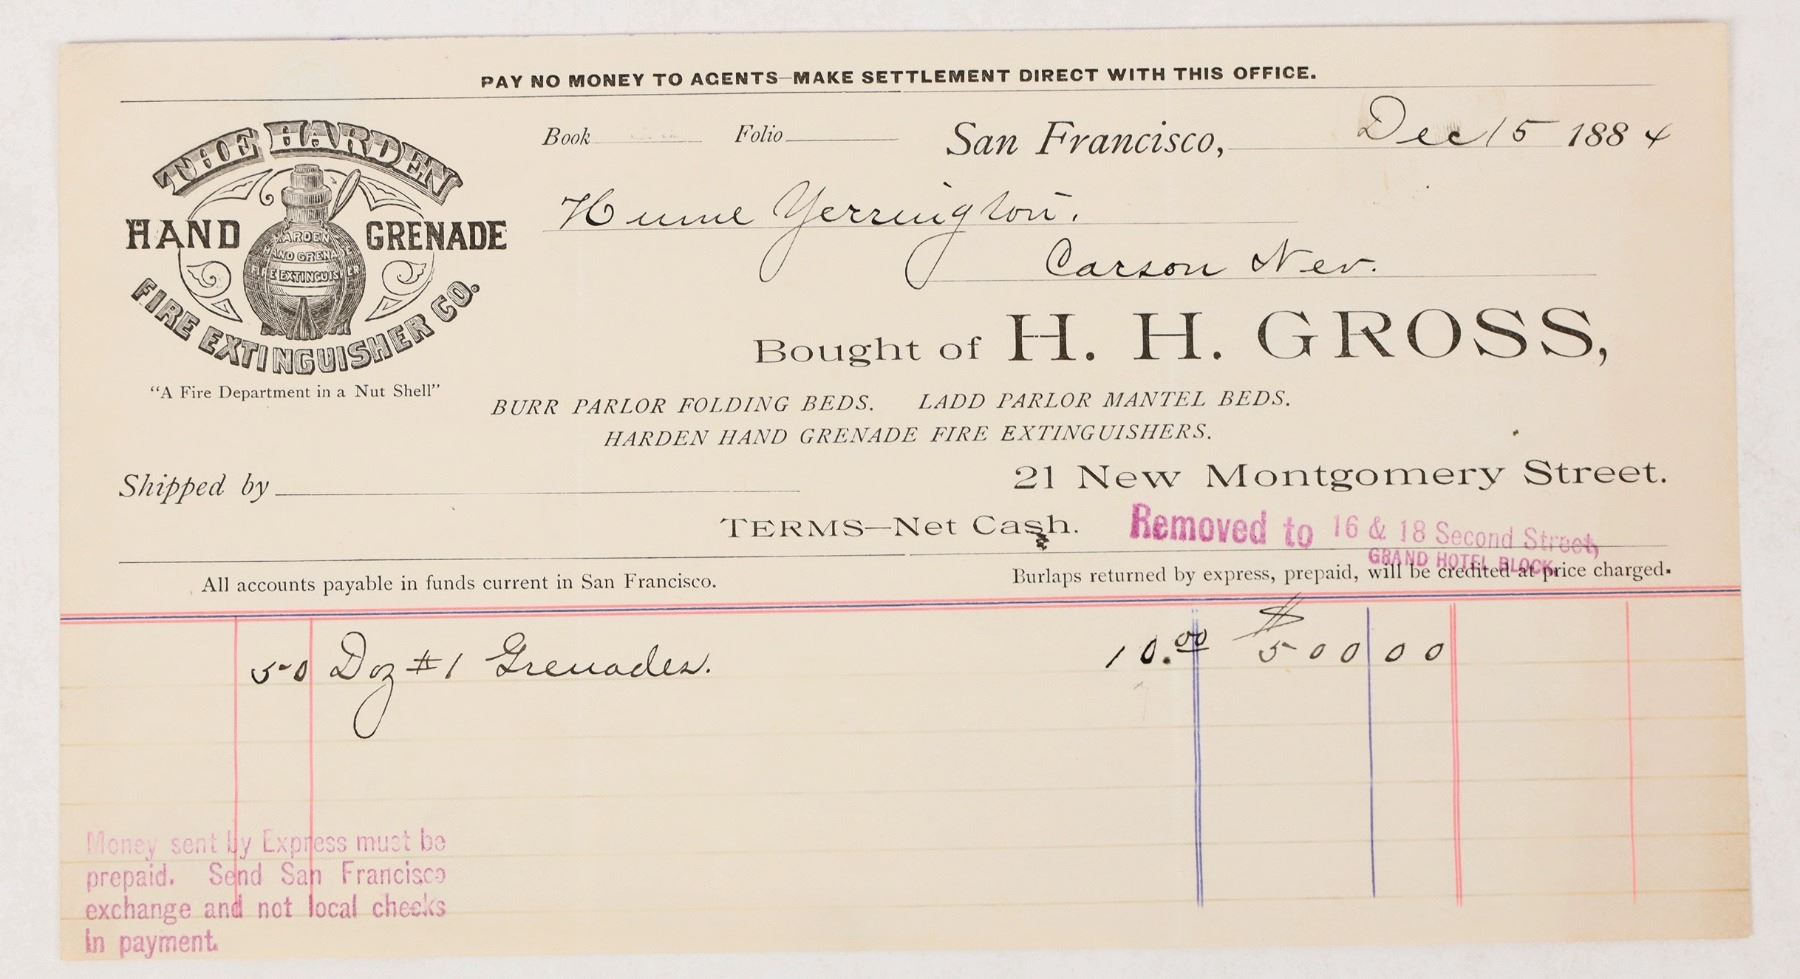 PAY NO MONEY TO AGENTS—MAKE SETTLEMENT DIRECT WITH THIS OFFICE.
THE HARDEN
HAND GRENADE
FIRE EXTINGUISHER CO.
HARDEN
HAND GRENA
FIRE EXTINGUISHER
"A Fire Department in a Nut Shell"
Book Folio San Francisco, Dec 15 1884
Hume Yerrington.
Carson Nev.
Bought of H. H. GROSS,
BURR PARLOR FOLDING BEDS. LADD PARLOR MANTEL BEDS.
HARDEN HAND GRENADE FIRE EXTINGUISHERS.
Shipped by
21 New Montgomery Street.
TERMS—Net Cash.
Removed to 16 & 18 Second Street,
GRAND HOTEL BLOCK.
All accounts payable in funds current in San Francisco. Burlaps returned by express, prepaid, will be credited at price charged.
50 Doz #1 Grenades. 10.00 $500 00
Money sent by Express must be
prepaid. Send San Francisco
exchange and not local checks
in payment.